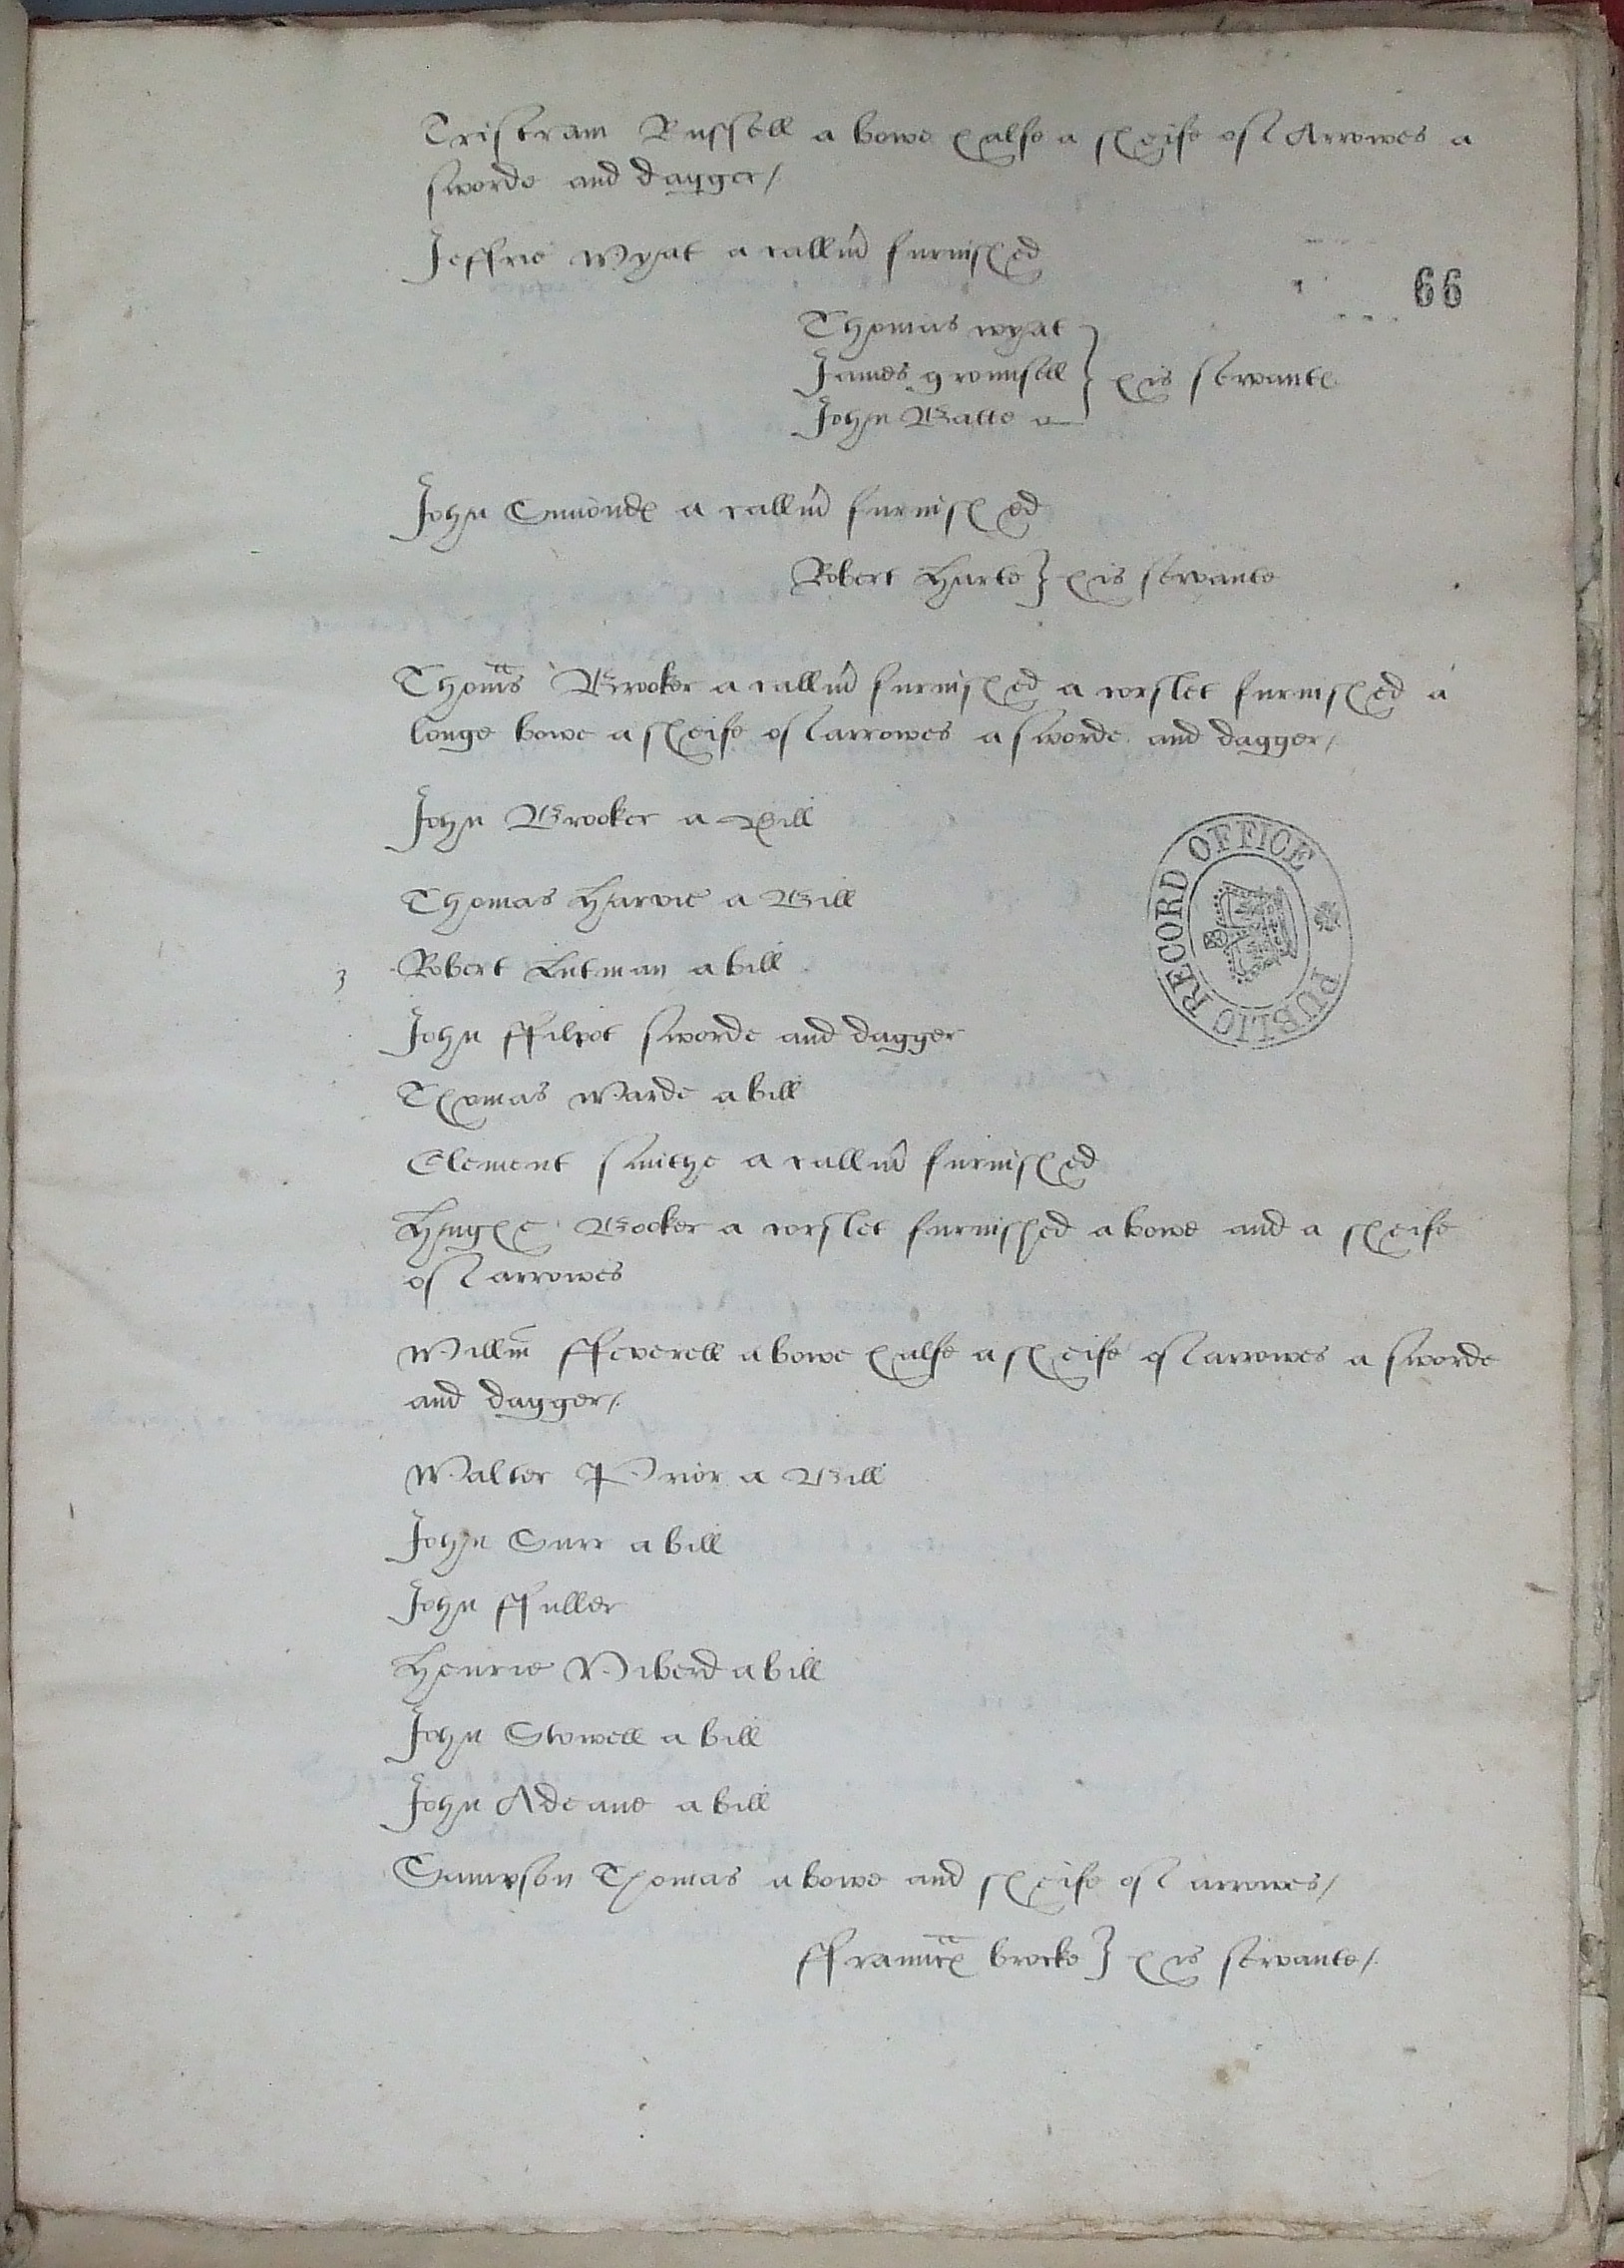 Tristram Russell a bowe halfe a sheife of Arrowes a
sworde and dagger /
Jeffrie wyat a callim̃ furnished
66
Thomas wyat
James gromsell } his servante
John Batte a
John Emonde a callim̃ furnished
Robert Harte } his servante
Thom̃s Brooker a callim̃ furnished a corslet furnished a
longe bowe a sheife of arrowes a sworde and dagger /
John Brooker a Bill
Thomas Harvie a Bill
3 Robert Lutman a bill
John ffilpot sworde and dagger
Thomas Warde a bill
Clement smithe a callim̃ furnished
Hughe Booker a corslet furnished a bowe and a sheife
of arrowes
Willm̃ ffeverell a bowe halfe a sheife of arrowes a sworde
and dagger /.
Walter Prior a Bill
John Surr a bill
John ffuller
Henrie Wiberd a bill
John Stowell a bill
John Adeane a bill
Sampson Thomas a bowe and sheife of arrowes /
brocke } his servante /.
PUBLIC RECORD OFFICE